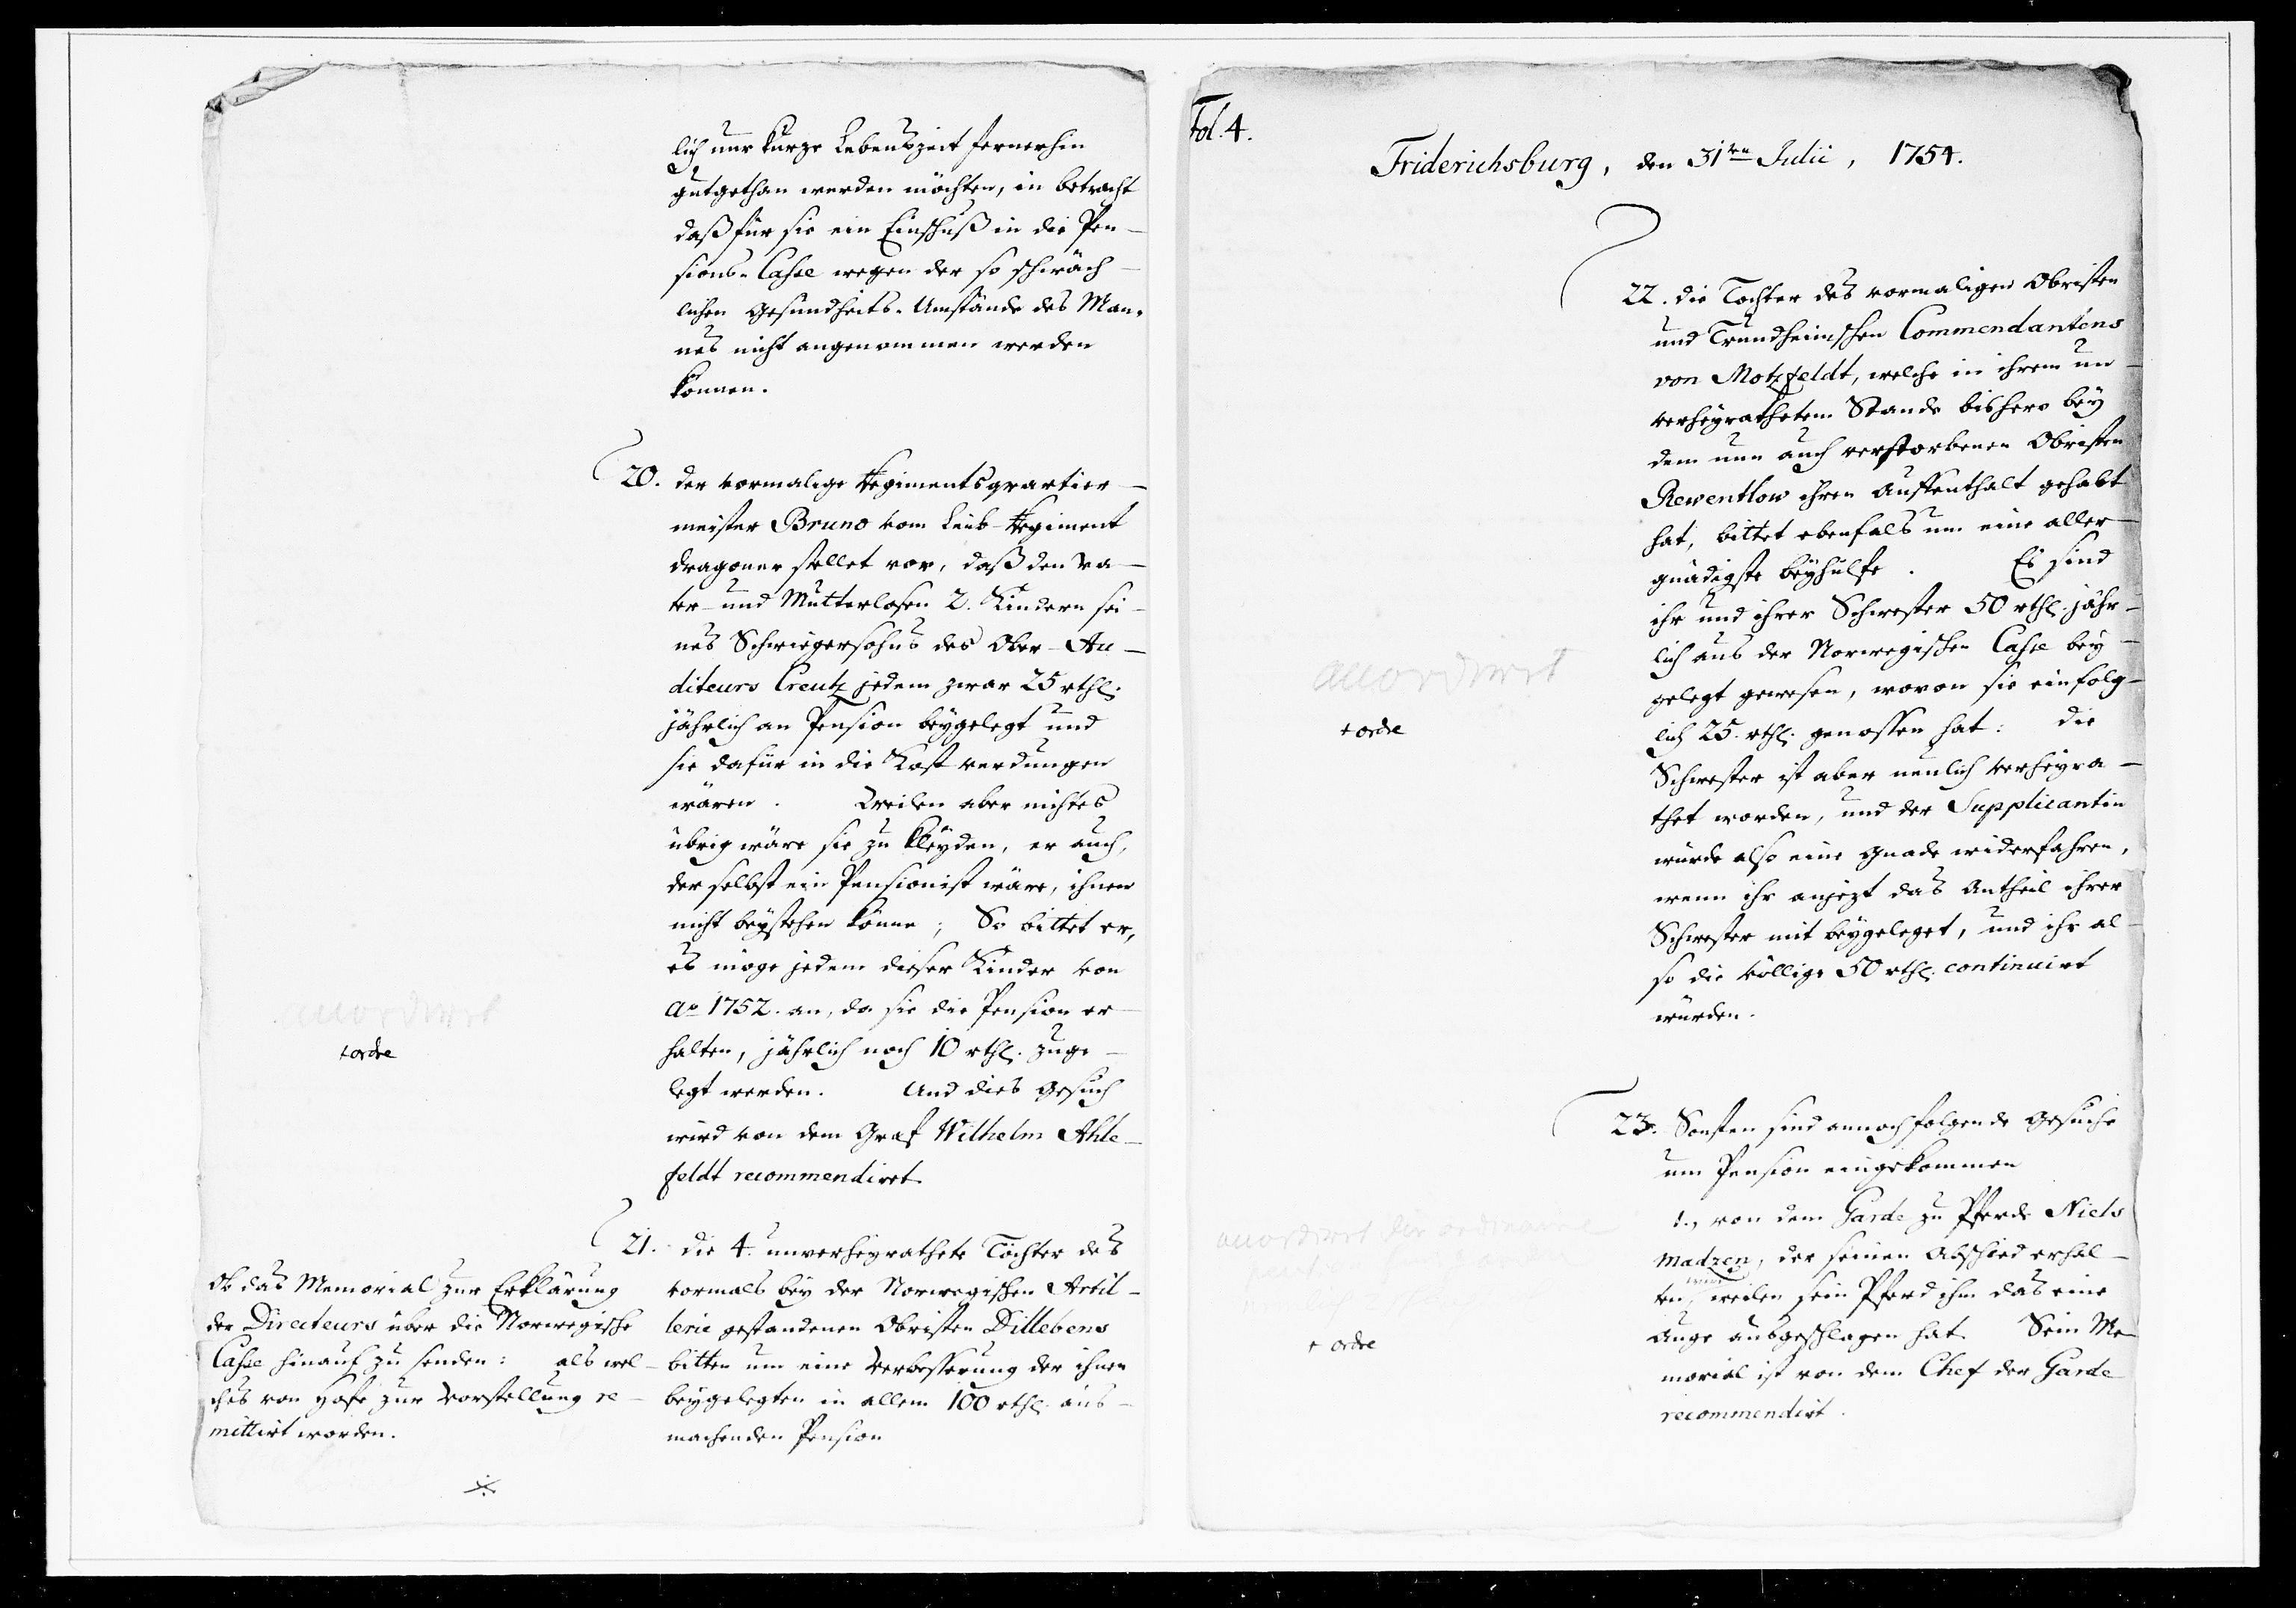 lich nur kurze Lebenszeit fernerhin
gutgethan werden möchten, in betracht
daß für sie ein Einschuß in die Pen-
sions-Casse wegen der so schwäch-
lichen Gesundheits-Umstände des Man-
nes nicht angenommen werden
können.
20. der vormalige Regimentsquartier-
meister Bruno vom Leib-Regiment
dragoner stellet vor, daß den va-
ter- und Mutterlosen 2. Kindern sei-
nes Schwiegersohns des Ober-Au-
diteurs Creutz jedem zwar 25 rthl.
jährlich an Pension beygelegt und
sie dafür in die Kost verdungen
wären. Weilen aber nichtes
übrig wäre sie zu kleyden, er auch,
der selbst ein Pensionist wäre, ihnen
nicht beystehen könne; So bittet er,
es möge jedem dieser Kinder von
Ao 1752. an, da sie die Pension er-
halten, jährlich noch 10 rthl. zuge-
legt werden. Und dies Gesuch
wird von dem Graf Wilhelm Ahle-
feldt recommendiret.
accordiret
+ ordre
21. die 4. unverheyrathete Töchter des
vormals bey der Norwegischen Artil-
lerie gestandenen Obristen Dillebens
bitten um eine Verbesserung der ihnen
beygelegten in allem 100 rthl. aus-
machenden Pension
Ob das Memorial zur Erklärung
der Directeurs über die Norwegische
Casse hinauf zu senden: als wel-
ches von Hofe zur Vorstellung re-
mittirt worden.
Fol. 4.
Friderichsburg, den 31ten Julii, 1754.
22. die Tochter des vormaligen Obristen
und Trundheimschen Commendantens
von Motzfeldt, welche in ihrem un-
verheyrathetem Stande bishero bey
dem nun auch verstorbenen Obristen
Rewentlow ihren Auffenthalt gehabt
hat, bittet ebenfals um eine aller-
gnädigste beyhülfe. Es sind
ihr und ihrer Schwester 50 rthl. jähr-
lich aus der Norwegischen Casse bey-
gelegt gewesen, wovon sie einfolg-
lich 25. rthl. genossen hat: die
Schwester ist aber neulich verheyra-
thet worden, und der Supplicantin
würde also eine Gnade widerfahren,
wenn ihr anjezt das Antheil ihrer
Schwester mit beygeleget, und ihr al-
so die völlige 50 rthl. continuirt
würden.
accordiret
+ ordre
23. Sonsten sind annoch folgende Gesuche
um Pension eingekommen
1., von dem Garde zu Pferde Niels
Madzen, der seinen Abschied erhal-
ten, weilen sein Pferd ihm das eine
Auge ausgeschlagen hat. Sein Me-
morial ist von dem Chef der Garde
recommendirt.
accordiret die ordinaire
+ ordre